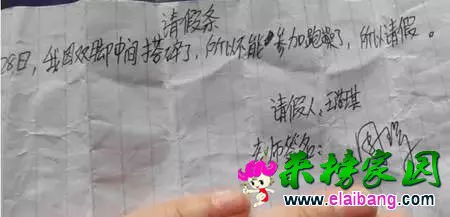 请假条
28日，我因双脚中间搭碎了，所以不能参加跑操了，所以请假。
请假人：王
老师签名：周
来榜家园
www.elaibang.com